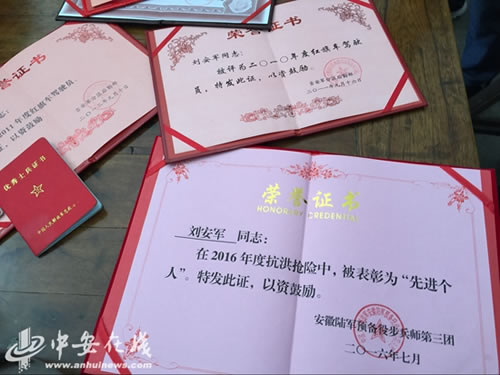 荣誉证书
刘安军同志:
被评为二○一○年度红旗车驾驶
员,特发此证,以资鼓励。
二○一一年九月十六日
荣誉证书
志:
2011年度红旗车驾驶员,
证,以资鼓励
优秀士兵证书
荣誉证书
HONOR CREDENTIAL
刘安军 同志:
在2016年度抗洪抢险中,被表彰为“先进个
人”。特发此证,以资鼓励。
安徽陆军预备役步兵师第三团
二○一六年七月
中安在线
www.anhuinews.com